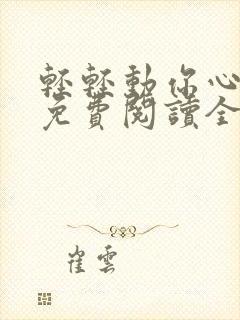 輕輕動你心
免費閱讀全
崔雲